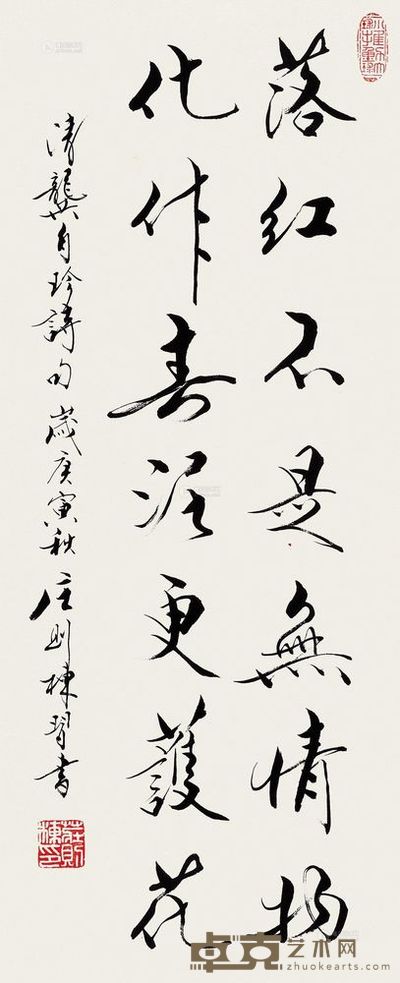 落红不是無情物
化作春泥更護花
清龔自珍詩句 歲庚寅秋 庄則棟習書
莊則棟印
卓克艺术网
zhuokearts.com